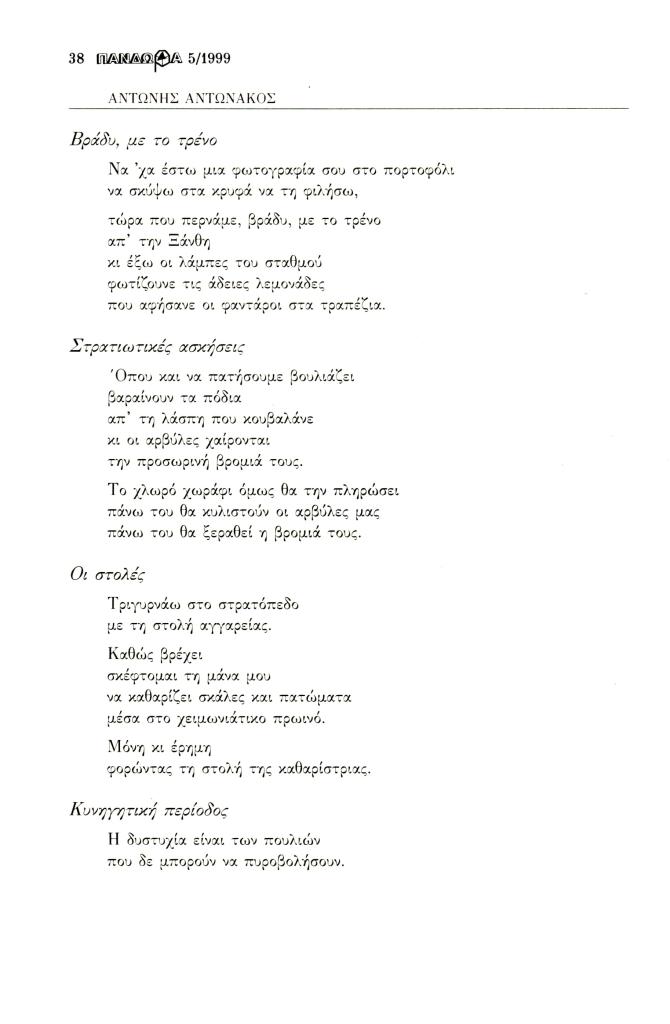 38 ΠΑΝΔΩΡΑ 5/1999
ΑΝΤΩΝΗΣ ΑΝΤΩΝΑΚΟΣ
Βράδυ, με το τρένο
Να 'χα έστω μια φωτογραφία σου στο πορτοφόλι
να σκύψω στα κρυφά να τη φιλήσω,
τώρα που περνάμε, βράδυ, με το τρένο
απ' την Ξάνθη
κι έξω οι λάμπες του σταθμού
φωτίζουνε τις άδειες λεμονάδες
που αφήσανε οι φαντάροι στα τραπέζια.
Στρατιωτικές ασκήσεις
Όπου και να πατήσουμε βουλιάζει
βαραίνουν τα πόδια
απ' τη λάσπη που κουβαλάνε
κι οι αρβύλες χαίρονται
την προσωρινή βρομιά τους.
Το χλωρό χωράφι όμως θα την πληρώσει
πάνω του θα κυλιστούν οι αρβύλες μας
πάνω του θα ξεραθεί η βρομιά τους.
Οι στολές
Τριγυρνάω στο στρατόπεδο
με τη στολή αγγαρείας.
Καθώς βρέχει
σκέφτομαι τη μάνα μου
να καθαρίζει σκάλες και πατώματα
μέσα στο χειμωνιάτικο πρωινό.
Μόνη κι έρημη
φορώντας τη στολή της καθαρίστριας.
Κυνηγητική περίοδος
Η δυστυχία είναι των πουλιών
που δε μπορούν να πυροβολήσουν.